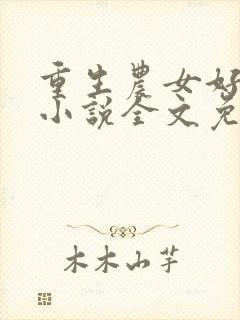 重生农女好
小说全文免
木木山芋